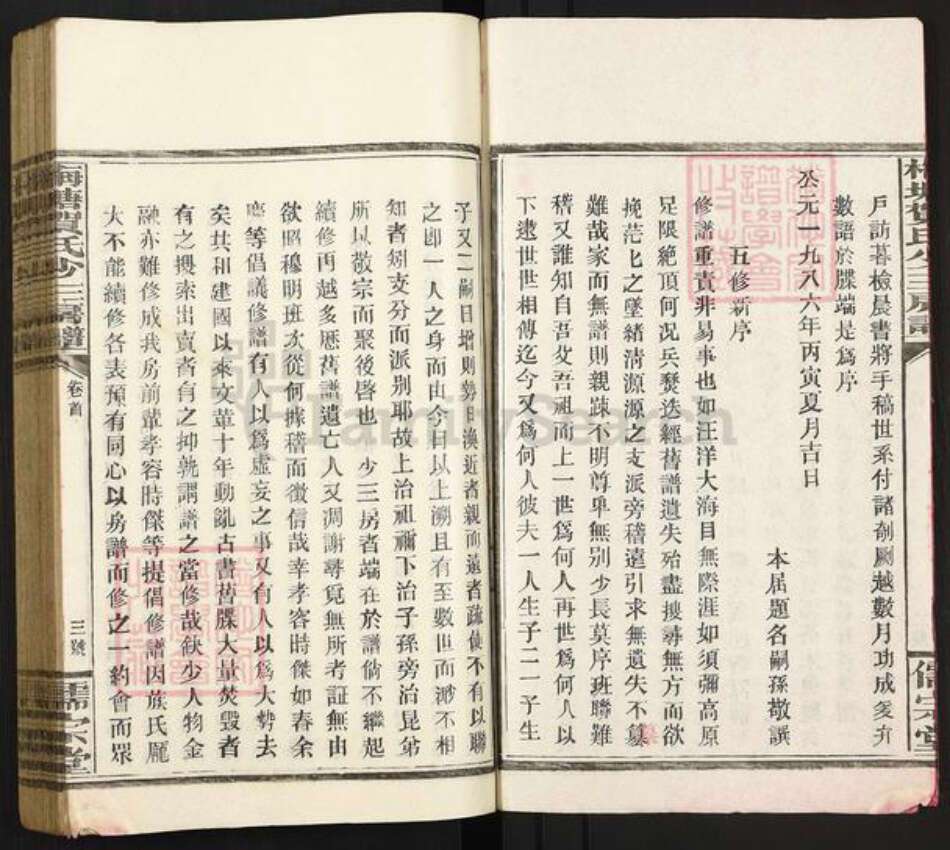 戶訪暮檢晨書將手稿世系付諸剞劂越數月功成爰弁
數語於牒端是爲序
公元一九八六年丙寅夏月吉日
本屆題名嗣孫敬譔
五修新序
修譜重責非易事也如汪洋大海目無際涯如須彌高原
足限絕頂何況兵燹迭經舊譜遺失殆盡搜尋無方而欲
挽茫匕之墜緒清源源之支派旁稽遠引求無遺失不綦
難哉家而無譜則親踈不明尊卑無別少長莫序班聯難
稽又誰知自吾父吾祖而上一世爲何人再世爲何人以
下逮世世相傳迄今又爲何人彼夫一人生子二一子生
子又二嗣目增則勢日渙近者親而遠者疏使不有以聯
之卽一人之身而由今日以上溯且有至數世而渺不相
知者矧支分而派别耶故上治祖禰下治子孫旁治昆弟
所以敬宗而聚後啓也 少三房者端在於譜倘不繼起
續修再越多歷舊譜遺亡人又凋謝尋覓無所考証無由
欲昭穆明班次從何據稽而徵信哉幸孝容時傑如春余
應等倡議修譜有人以爲虛妄之事又有人以爲大勢去
矣共和建國以來文革十年動亂古書舊牒大量焚毀者
有之搜索出賣者有之抑孰謂譜之當修哉缺少人物金
融亦難修成我房前輩孝容時傑等提倡修譜因族氏龐
大不能續修各表預有同心以房譜而修之一約會而眾
梅塘賀氏少三房譜
卷首
三號
儒宗堂
儒宗堂
FamilySearch